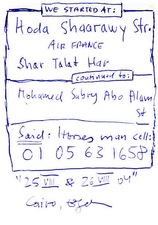 WE STARTED AT:
Hoda Shaarawy Str.
AIR FRANCE
Shar Talat Har
continued to:
Mohamed Sabry Abo Alam
st
Said: Horses man cell:
01 05 63 1658
"25 VIII & 26 VIII 04"
Cairo,